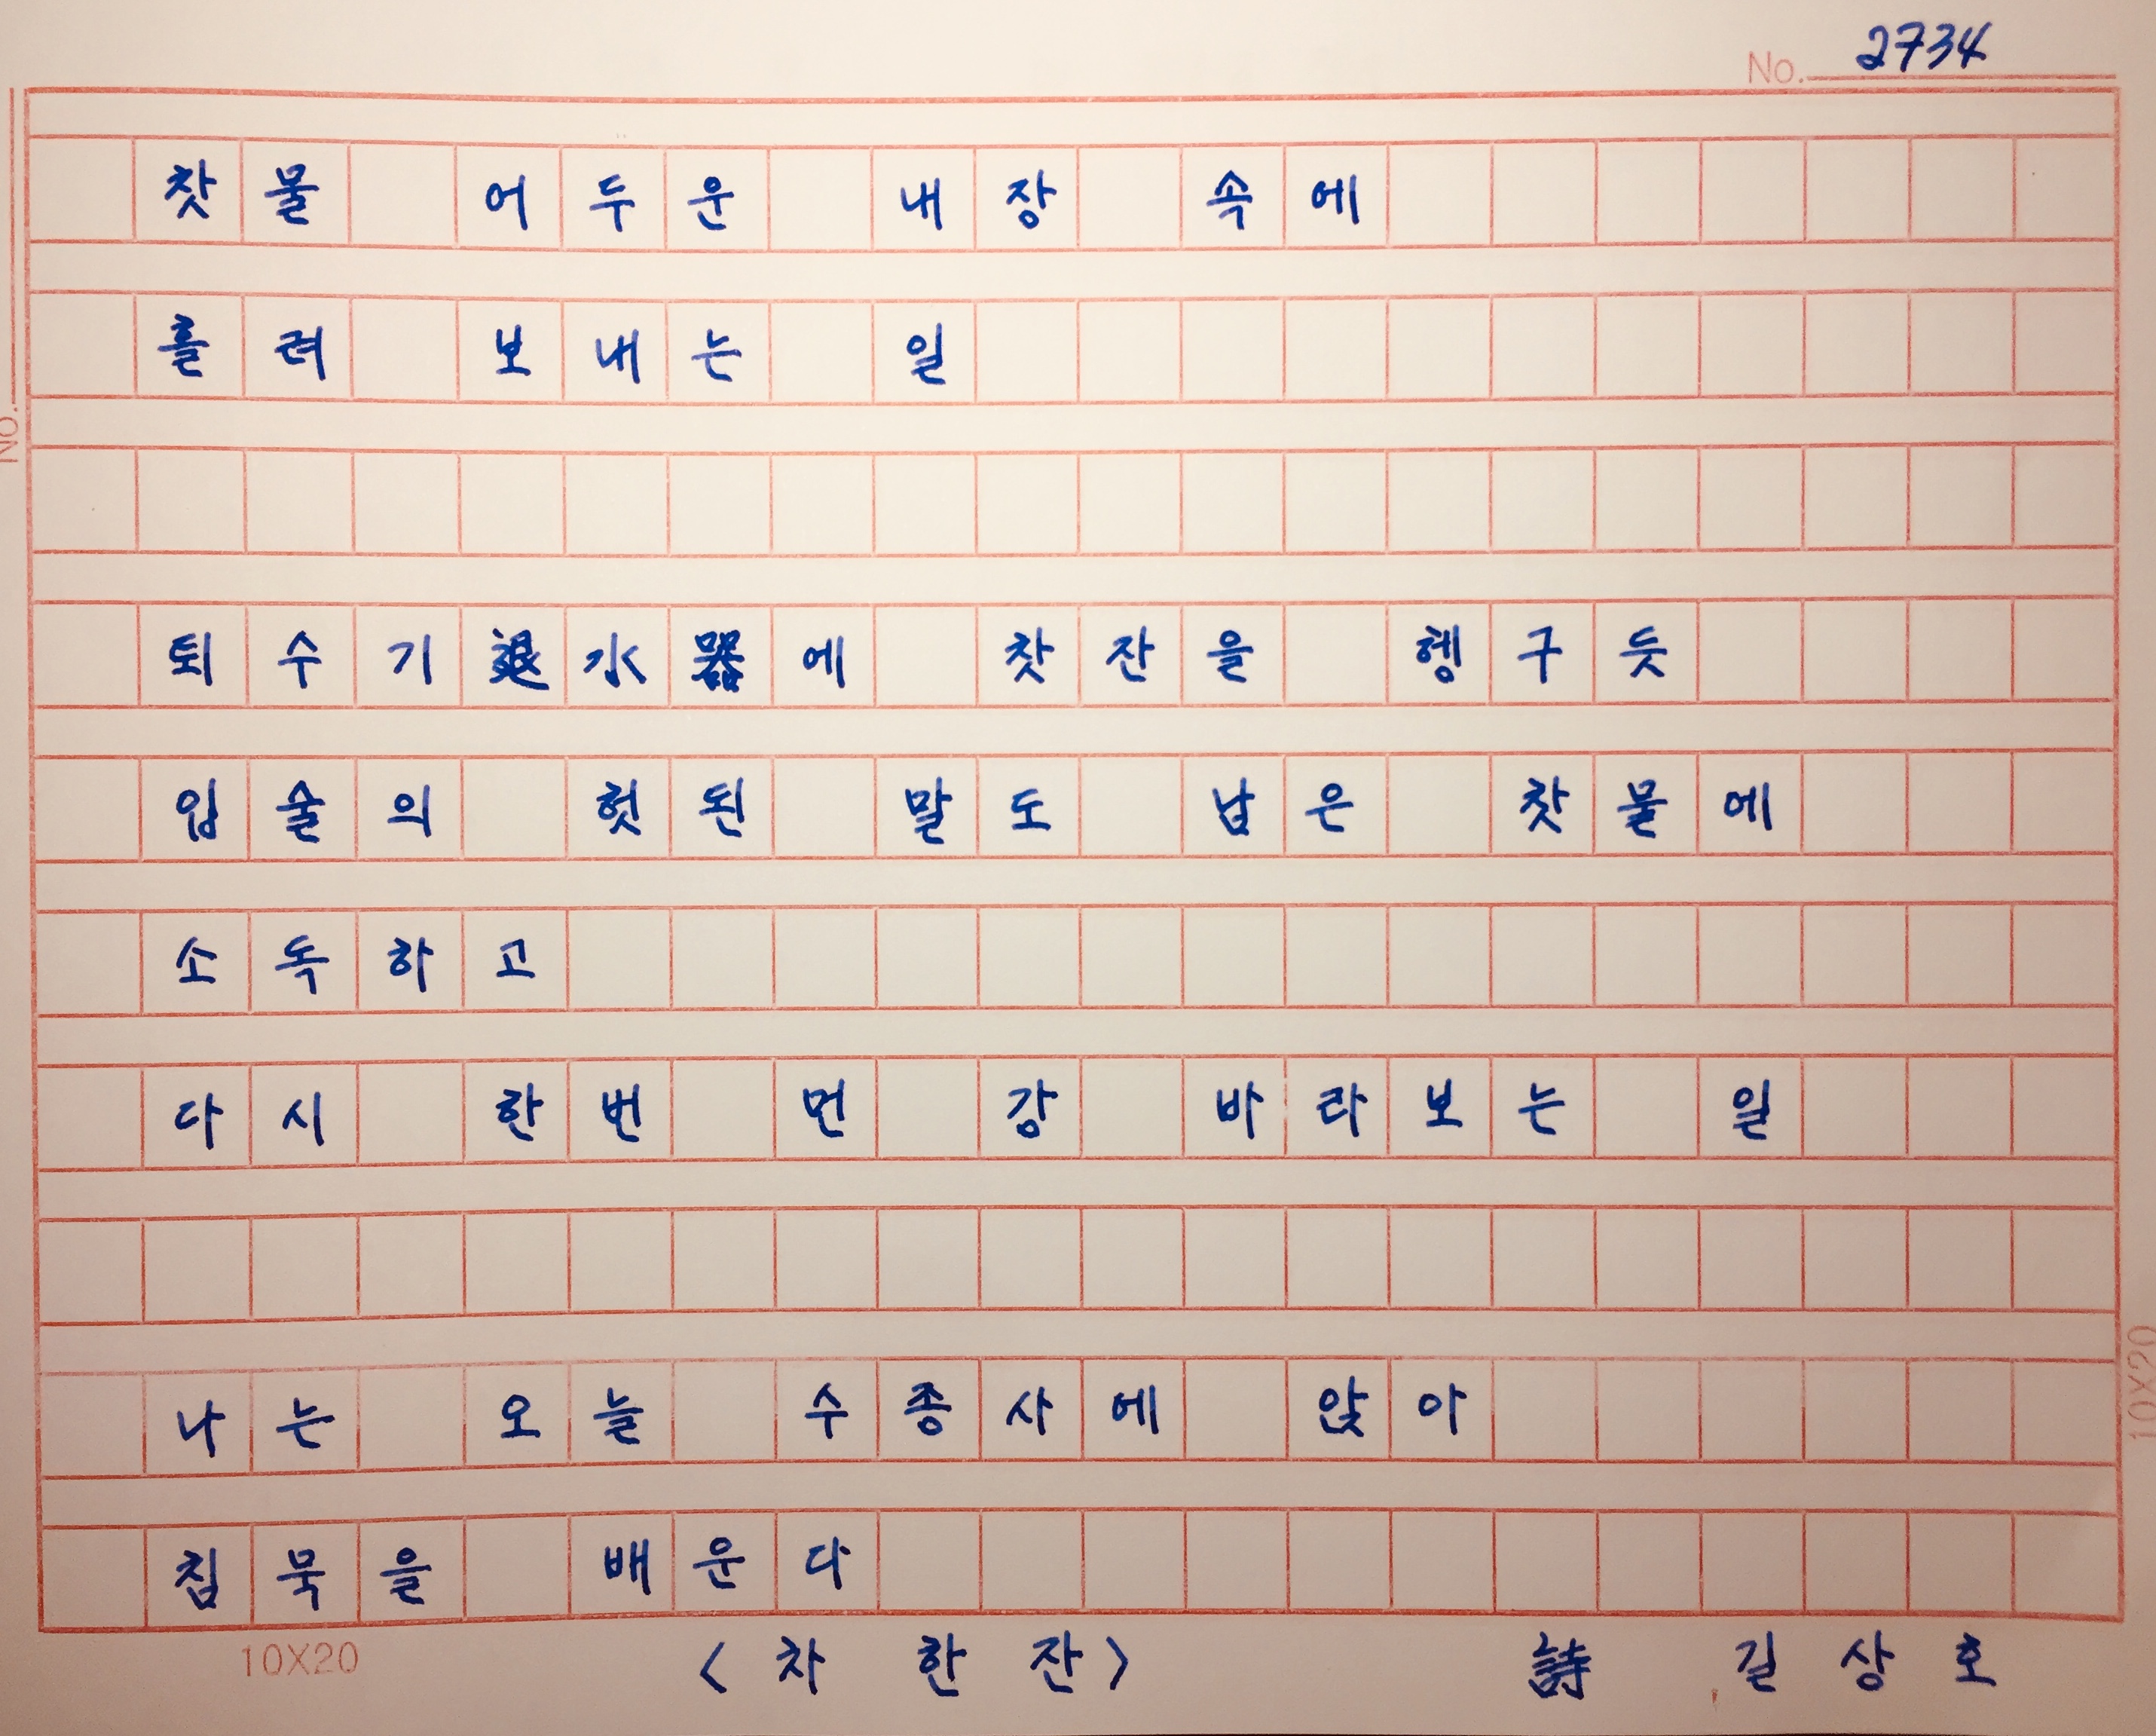 No. 2734
찻물 어두운 내장 속에
흘려 보내는 일
퇴수기退水器에 찻잔을 헹구듯
입술의 헛된 말도 남은 찻물에
소독하고
다시 한번 먼 강 바라보는 일
나는 오늘 수종사에 앉아
침묵을 배운다
10X20 <차 한 잔> 詩 길상호
No.
10X20